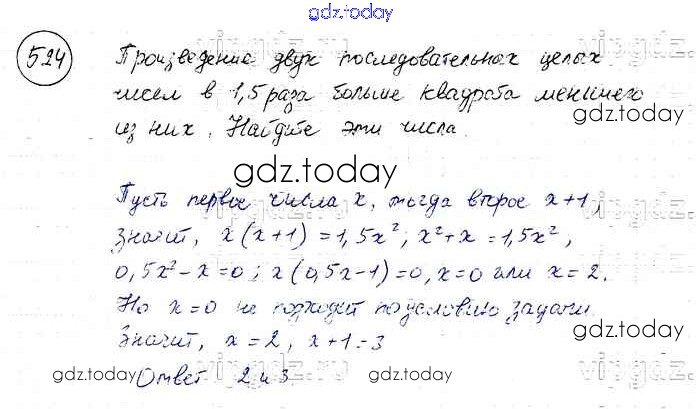 gdz.today
524
Произведение двух последовательных целых
чисел в 1,5 раза больше квадрата меньшего
из них. Найдите эти числа.
gdz.today
gdz.today
Пусть первое числа x, тогда второе x+1,
значит, x(x+1)=1,5x²; x²+x=1,5x²,
0,5x²-x=0; x(0,5x-1)=0, x=0 или x=2.
Но x=0 не подходит по условию задачи
gdz.today
Значит, x=2, x+1=3
gdz.today
gdz.today
Ответ 2 и 3